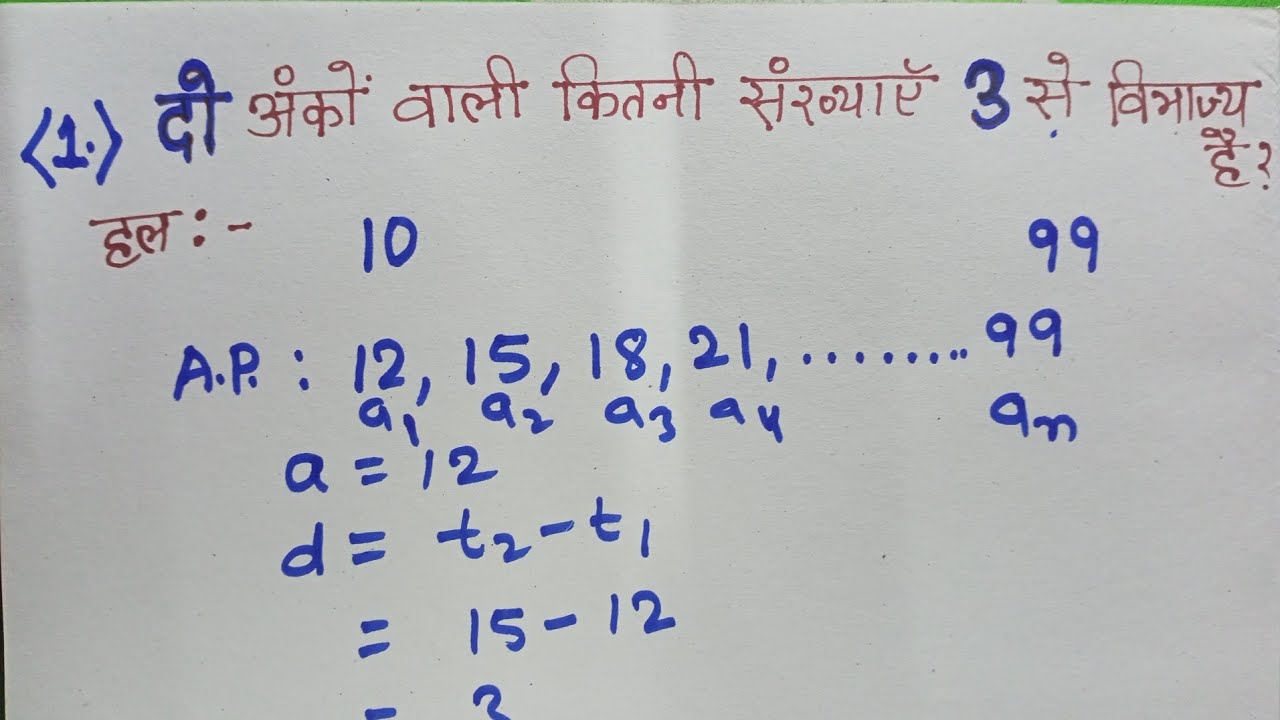 <1.> दो अंकों वाली कितनी संख्याएॅ 3 से विभाज्य
है?
हल :- 10 99
A.P. : 12, 15, 18, 21, ........ 99
a1 a2 a3 a4 an
a = 12
d = t2 - t1
= 15 - 12
= 3